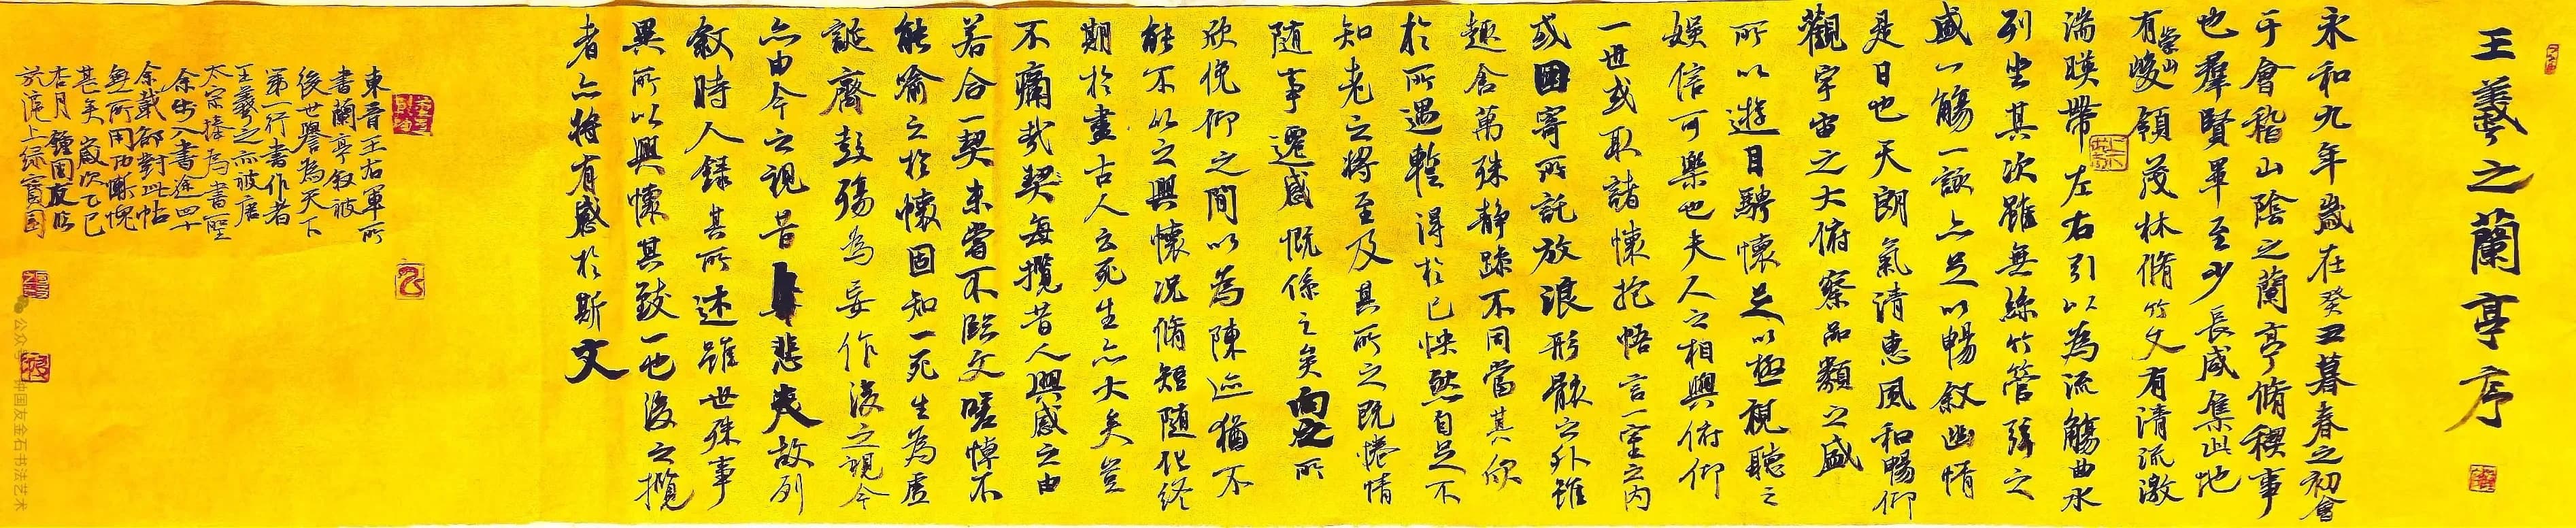 王羲之蘭亭序
永和九年歲在癸丑暮春之初會
于會稽山陰之蘭亭脩稧事
也羣賢畢至少長咸集此地
有崇山峻領茂林脩竹又有清流激
湍暎帶左右引以為流觴曲水
列坐其次雖無絲竹管弦之
盛一觴一詠亦足以暢叙幽情
是日也天朗氣清惠風和暢仰
觀宇宙之大俯察品類之盛
所以遊目騁懷足以極視聽之
娛信可樂也夫人之相與俯仰
一世或取諸懷抱悟言一室之內
或因寄所託放浪形骸之外雖
趣舍萬殊靜躁不同當其欣
於所遇蹔得於己怏然自足不
知老之將至及其所之既惓情
隨事遷感慨係之矣向之所
欣俛仰之間以為陳迹猶不
能不以之興懷況脩短隨化終
期於盡古人云死生亦大矣豈
不痛哉每攬昔人興感之由
若合一契未嘗不臨文嗟悼不
能喻之於懷固知一死生為虛
誕齊彭殤為妄作後之視今
亦由今之視昔悲夫故列
叙時人錄其所述雖世殊事
異所以興懷其致一也後之攬
者亦將有感於斯文
東晉王右軍所
書蘭亭叙被
後世譽為天下
第一行書作者
王羲之亦被唐
太宗捧為書聖
余步入書途四十
余載部對此帖
無所用功慚愧
甚矣歲次乙巳
杏月鍾國友臨
於滬上綠寶園
公众号·钟国友金石书法艺术